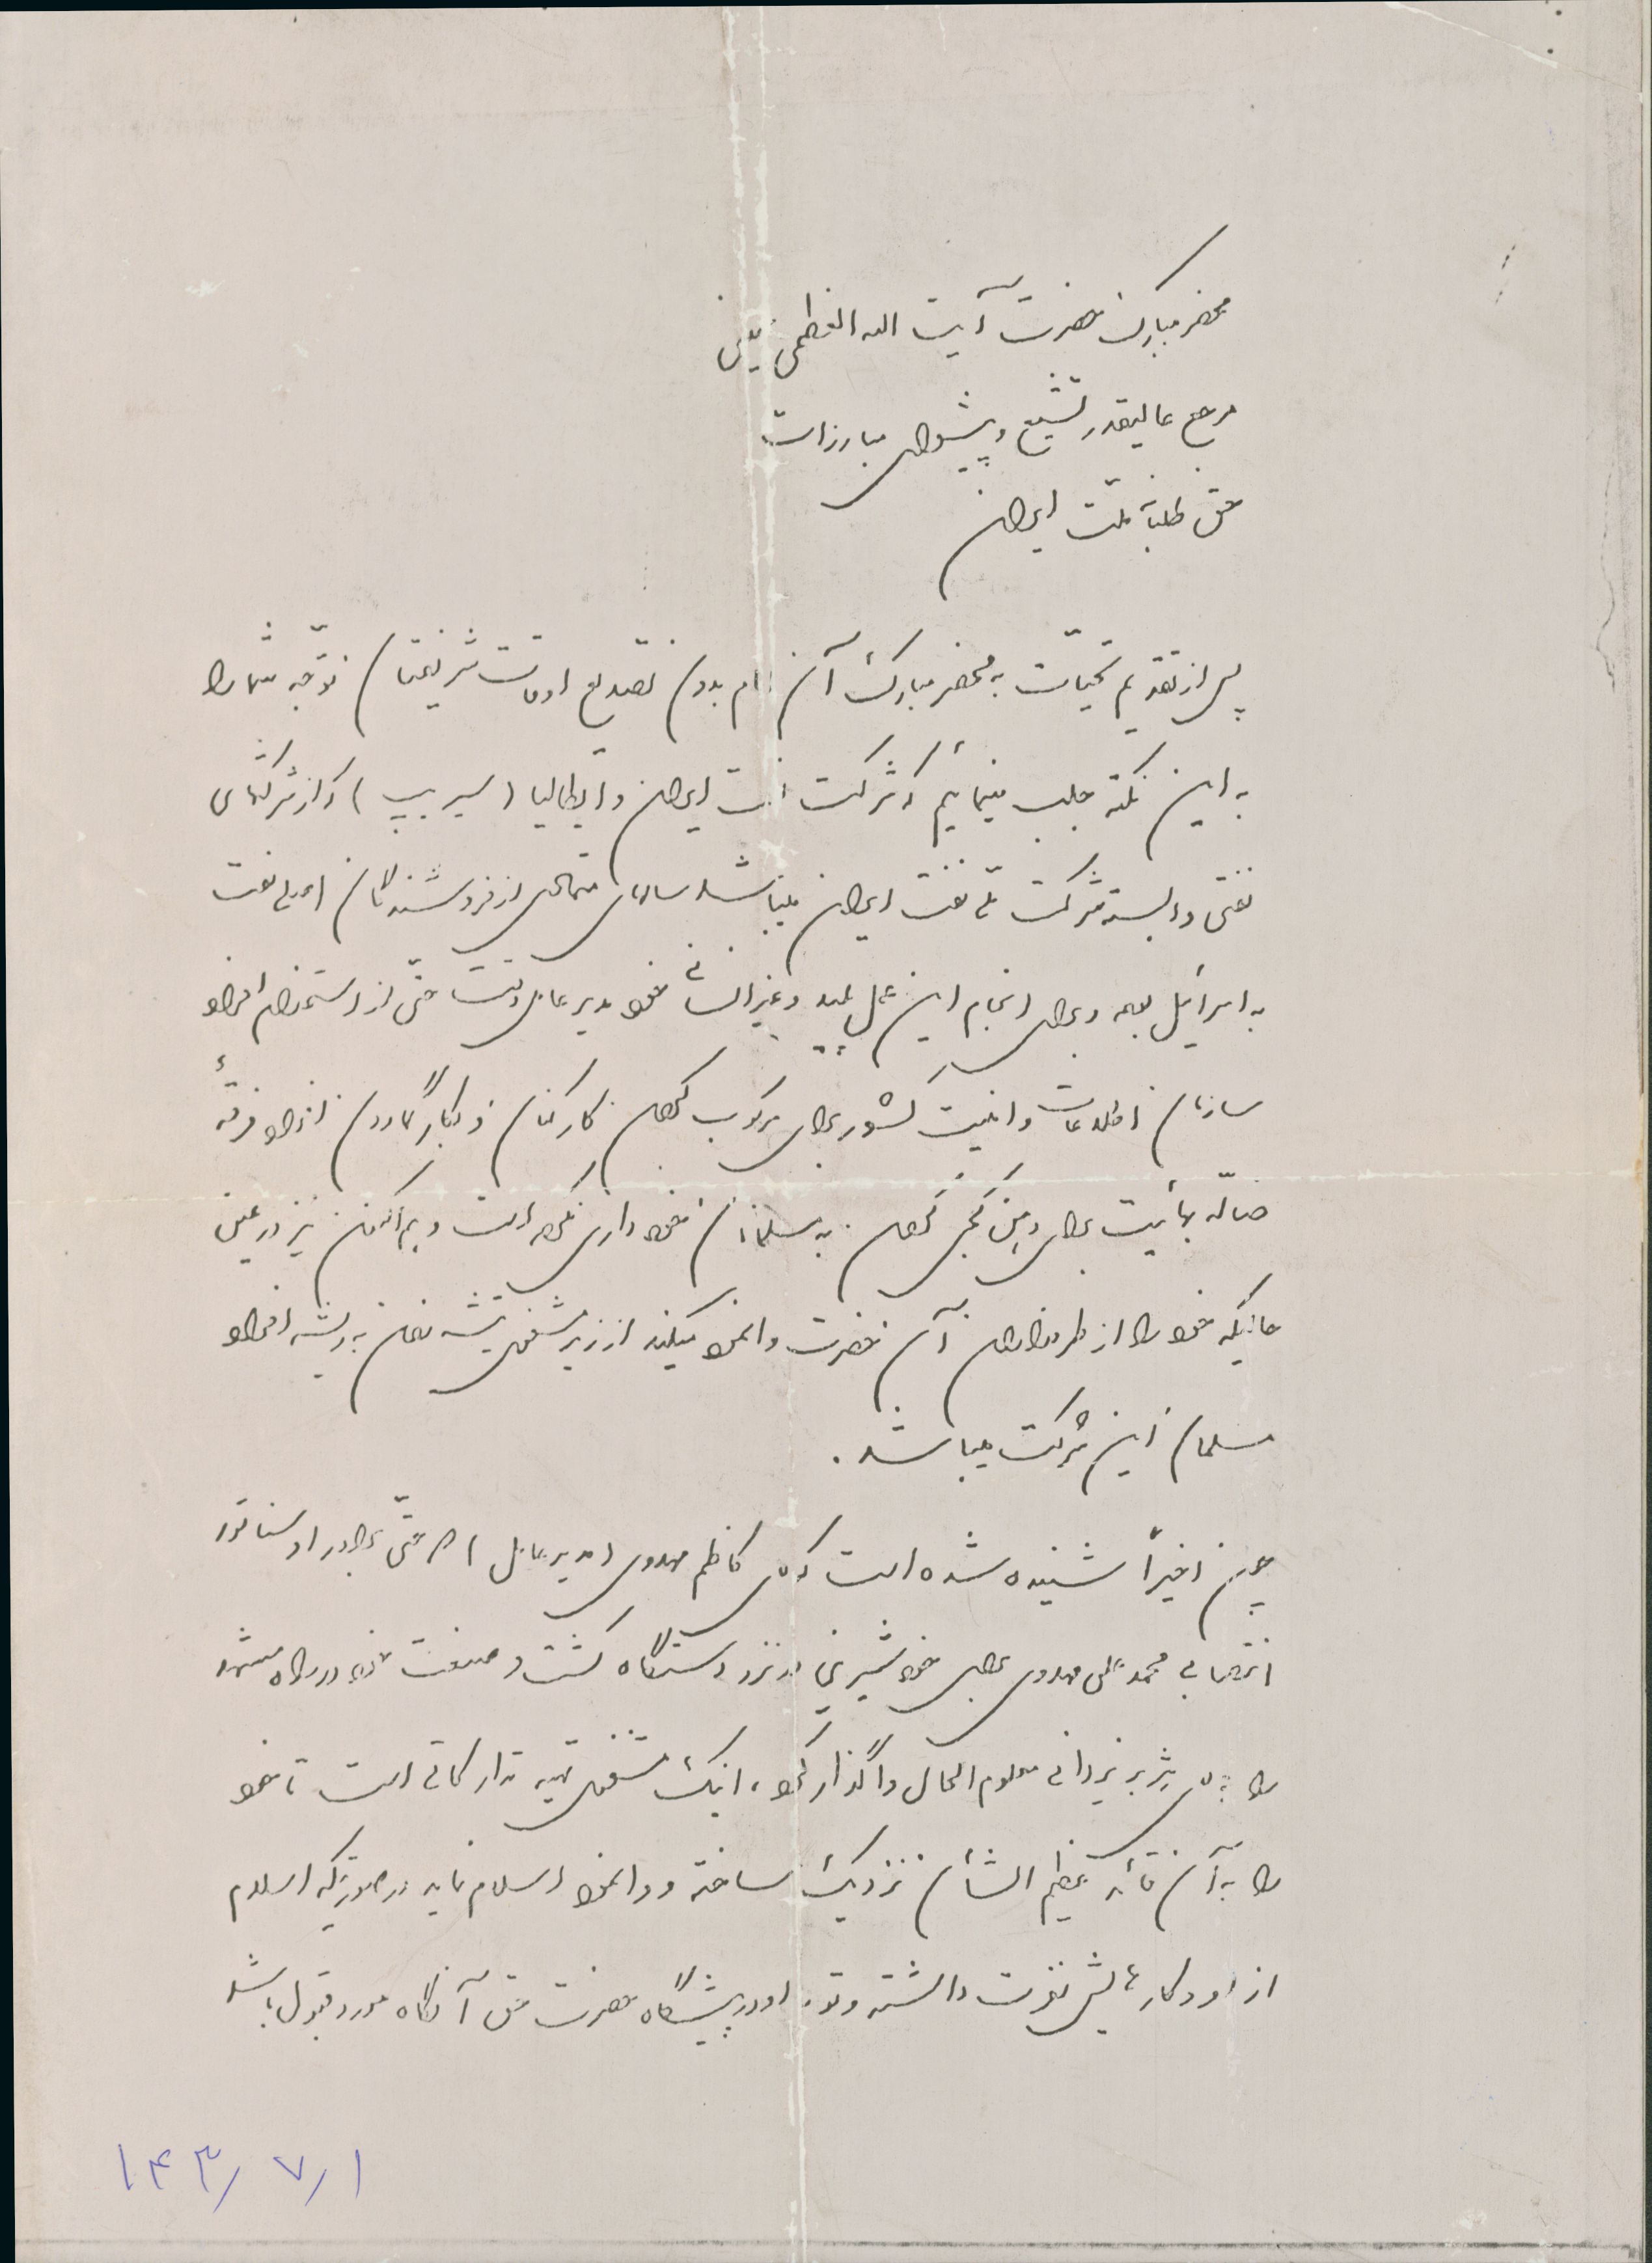 محضر مبارک حضرت آیت الله العظمی خمینی
مرجع عالیقدر تشیّع و پیشوای مبارزات
حق طلبانهٔ ملّت ایران
پس از تقدیم تحیّات به محضر مبارک آن امام بدون تصدیع اوقات شریفتان توّجه شما را
به این نکته جلب مینمائیم که شرکت نفت ایران و ایطالیا (سیریپ) که از شرکتهای
نفتی وابسته شرکت ملّی نفت ایران میباشد سالهای متمادی از فروشندگان اصلی نفت
به اسرائیل بوده و برای انجام این عمل پلید و غیر انسانی خود مدیر عامل وقت حتّی از استخدام افراد
سازمان اطلاعات و امنیت کشور برای سرکوب کردن کارکنان و بکار گماردن افراد فرقهٔ
ضالّه بهائیت برای دهن کجی کردن به مسلمانان خود داری نکرده است و هم اکنون نیز در عین
حالیکه خود را از طرفداران آن حضرت وانمود میکند از زیر مشغول تیشه زدن به ریشه افراد
مسلمان این شرکت میباشد.
چون اخیراً شنیده شده است که آقای کاظم مهدوی (مدیر عامل) حتّی برادر او سناتور
انتصابی محمد علی مهدوی برای خود شیرینی در نزد دستگاه کشت و صنعت خود در راه مشهد
را به آقای هژبر یزدانی معلوم الحال واگذار کرد، اینک مشغول تهیه تدارکاتی است تا خود
را به آن قائد عظیم الشأن نزدیک ساخته و وانمود اسلام نماید در صورتیکه اسلام
از او و کارهایش نفرت داشته و توبه او در پیشگاه حضرت حق آنگاه مورد قبول باشد
۱۴۳/ ۷/۱